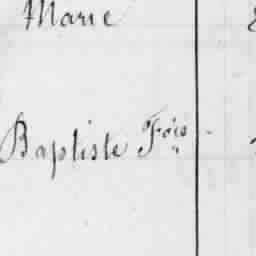 Marie
Baptiste Fois